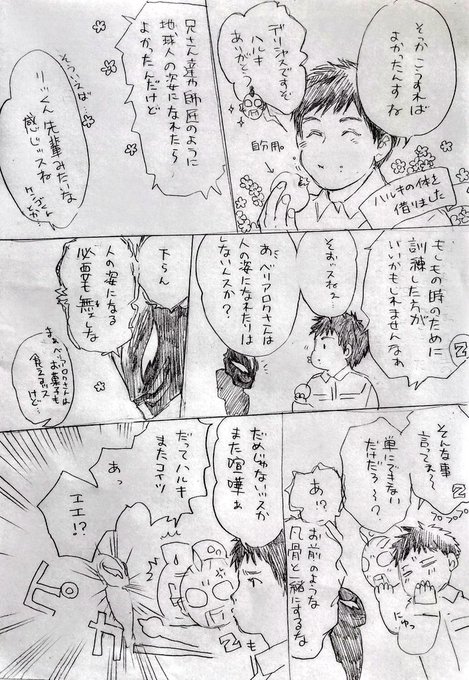 そっか こうすれば
よかったんすね
デリシャスですぞ
ハルキ
ありがとう
自分用。
ハルキの体を
借りました
兄さん達や師匠のように
地球人の姿になれたら
よかったんだけど
そういえば
リっくん先輩みたいな
感じッスね
もしもの時のために
訓練した方が
いいかもしれませんなぁ
Z
そおッスねぇ
あ、ベリアロクさんは
人の姿になれたりは
しないんスか?
下らん
人の姿になる
必要も無し
まぁベリアロクさんは
お菓子も
食えるッス
けど…
そんな事
言ってぇ〜
単にできない
だけだろ〜?
Z
プププ
にゅっ
あ!?
お前のような
凡骨と一緒にするな
だめじゃないッスか
また喧嘩ぁ
だってハルキ
またコイツ
あっ
エエ!?
Z
ピカ